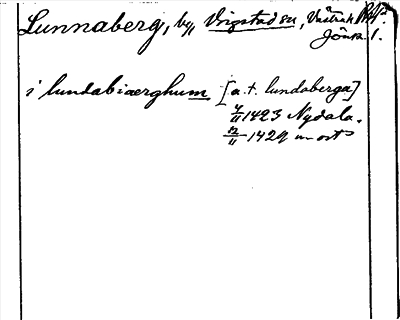 Lunnaberg, by, Vrigstad sn, Västra h
Jönk. l.
i lundabiærghum [a.t. lundaberga]
4/11 1423 Nydala.
12/11 1429